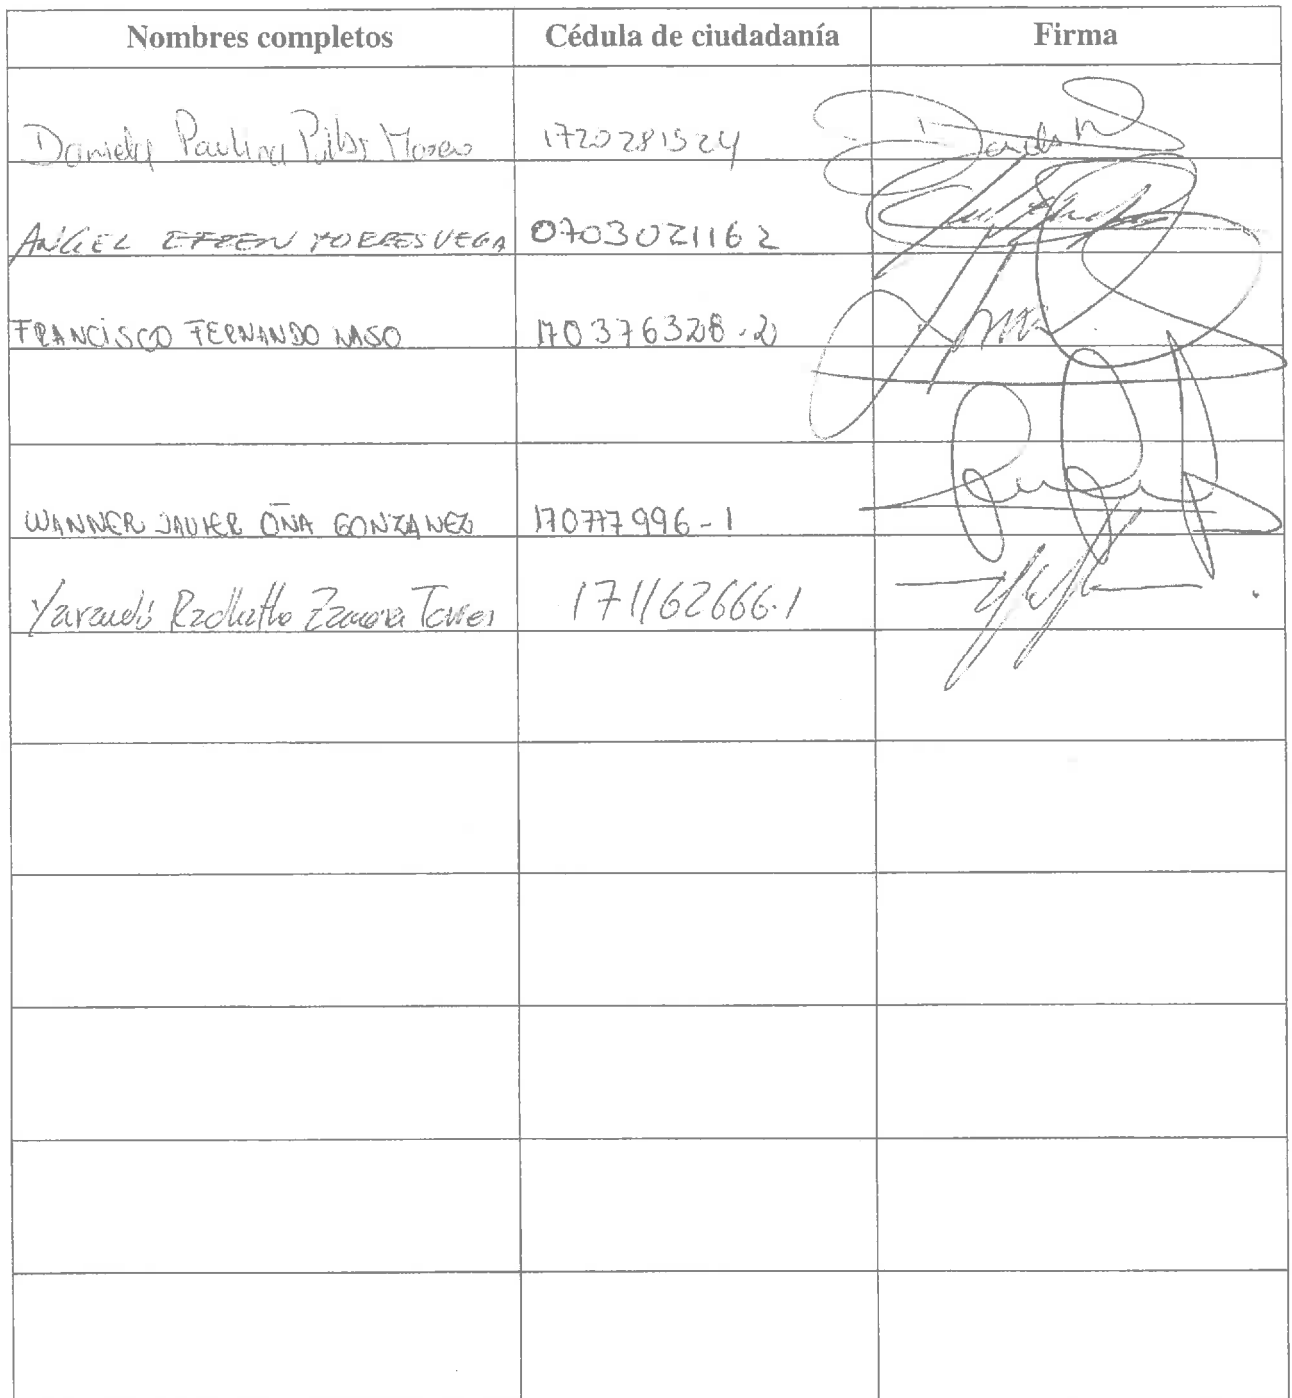 Nombres completos Cédula de ciudadanía Firma
Daniela Paulina Moreno 1720281524
ANGEL EFREN TORRES VEGA 0703021162
FRANCISCO FERNANDO LASO 170376328-2
WANNER JAVIER OÑA GONZALEZ 170777996-1
Zamora Torres 171162666-1